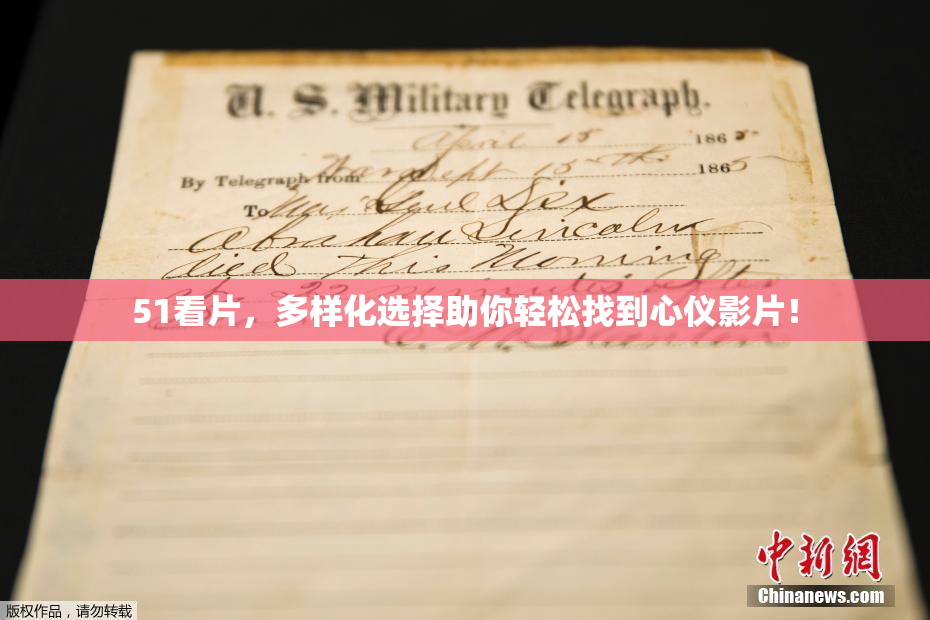 U. S. Military Telegraph.
April 15 1865
By Telegraph from War Dept 15th 1865
To Maj Genl Dix
Abraham Lincoln
died This Morning
at 22 minutes after
51看片，多样化选择助你轻松找到心仪影片！
E. M. Stanton
中新网
Chinanews.com
版权作品，请勿转载